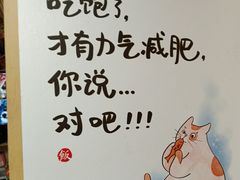 吃饱了，
才有力气减肥，
你说...
对吧!!!
饭